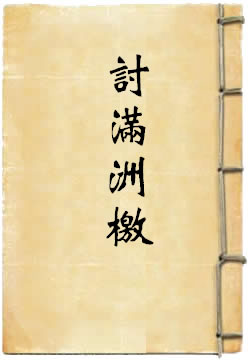 討滿洲檄